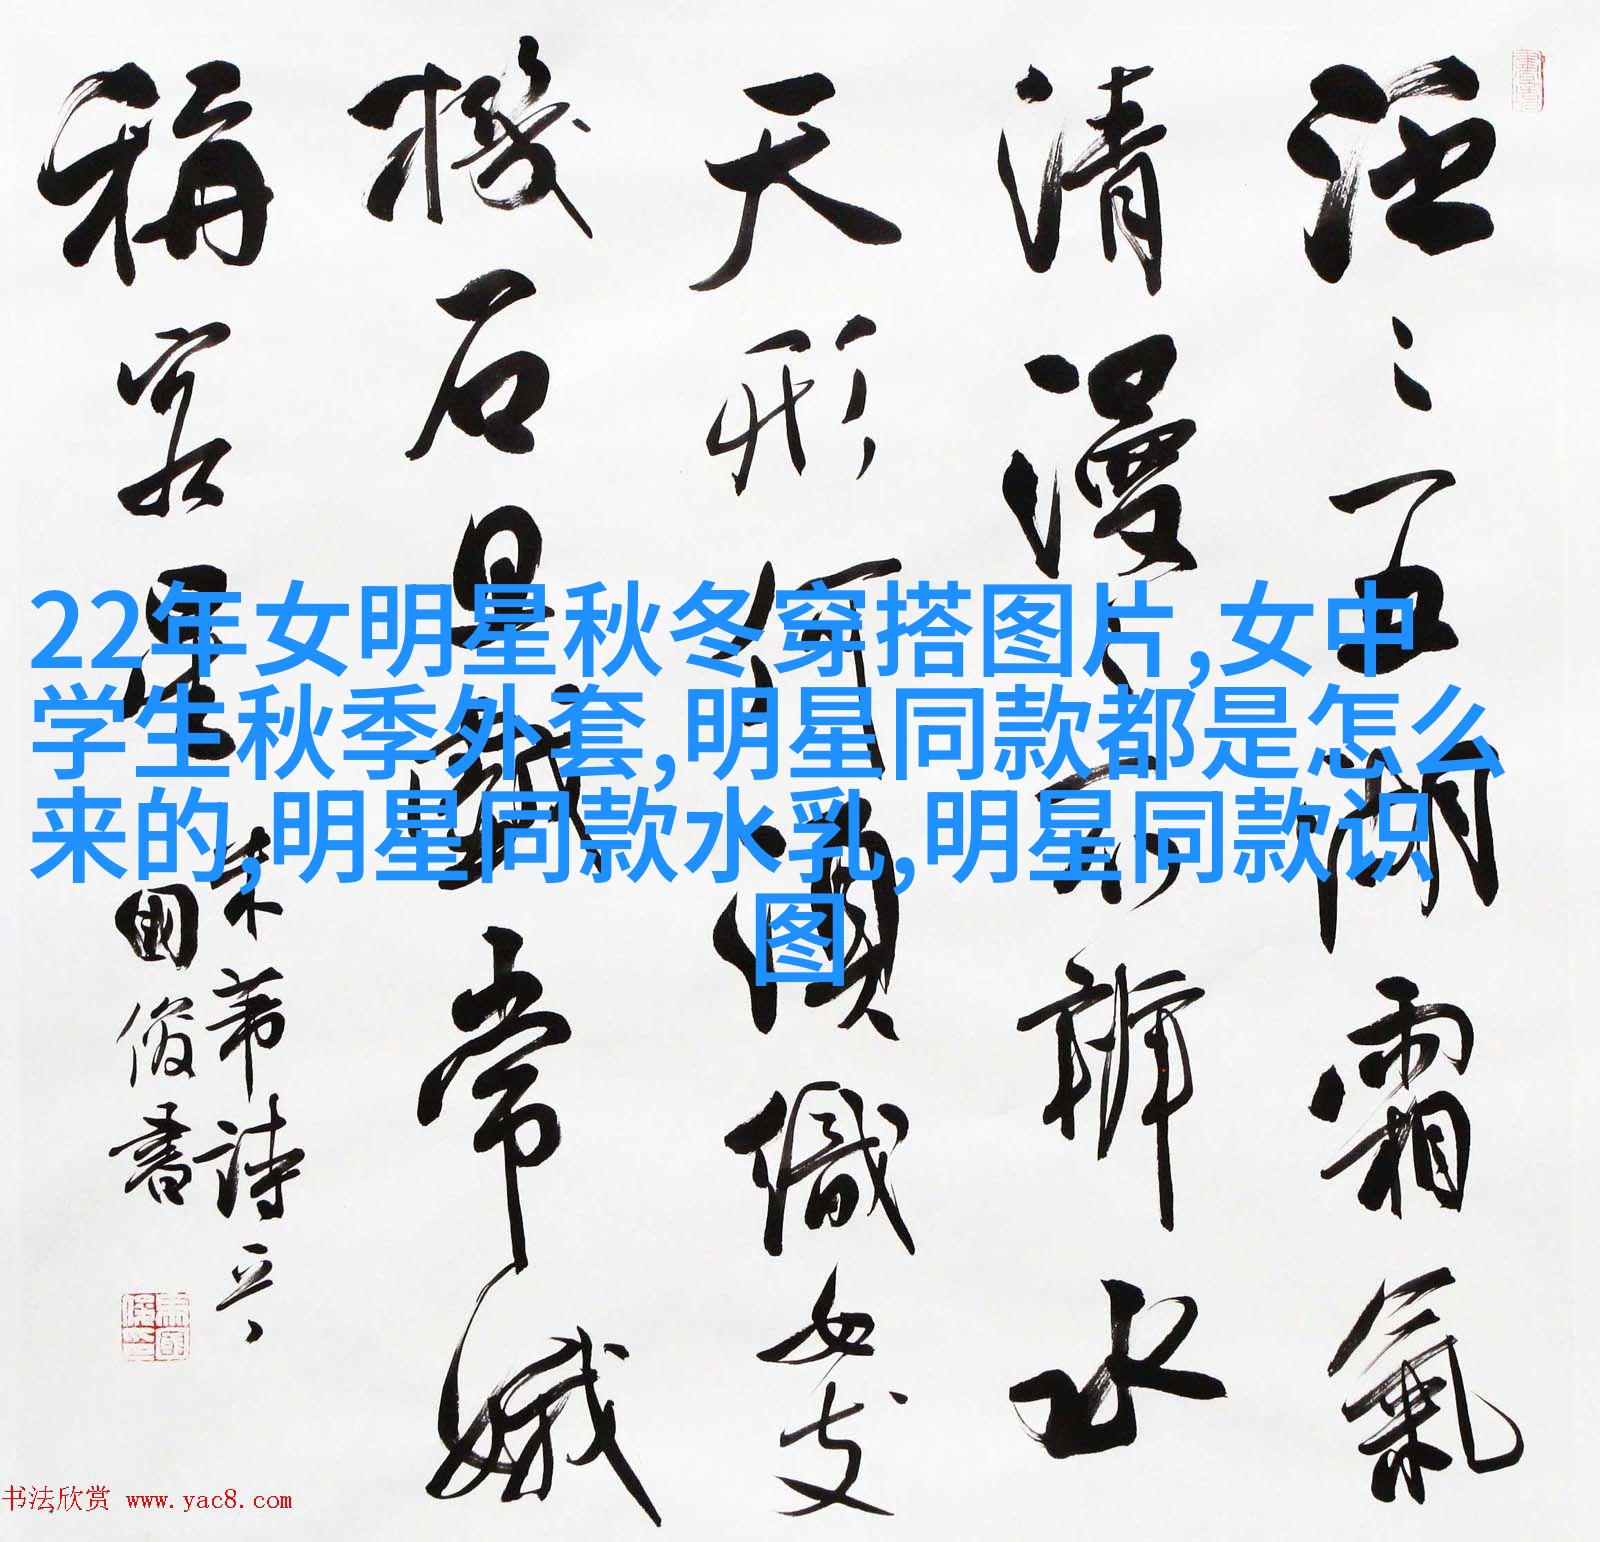 泛々五湖霜氣
清漫々不辨水
天形何須織女支
機石且戲常娥
稱客星
米芾詩
國俊書
22年女明星秋冬穿搭图片,女中
学生秋季外套,明星同款都是怎么
来的,明星同款水乳,明星同款识
图
书法欣赏 www.yac8.com